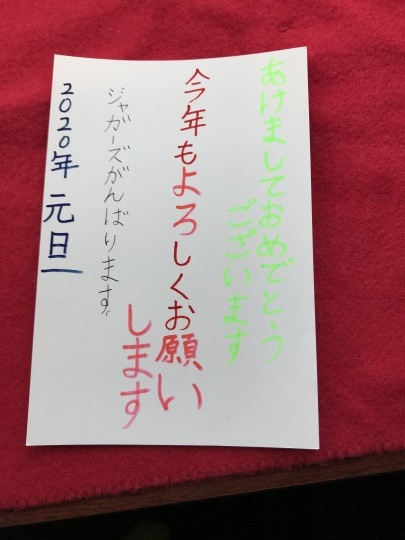 あけましておめでとう
ございます
今年もよろしくお願い
します
ジャガーズがんばります。
2020年 元旦